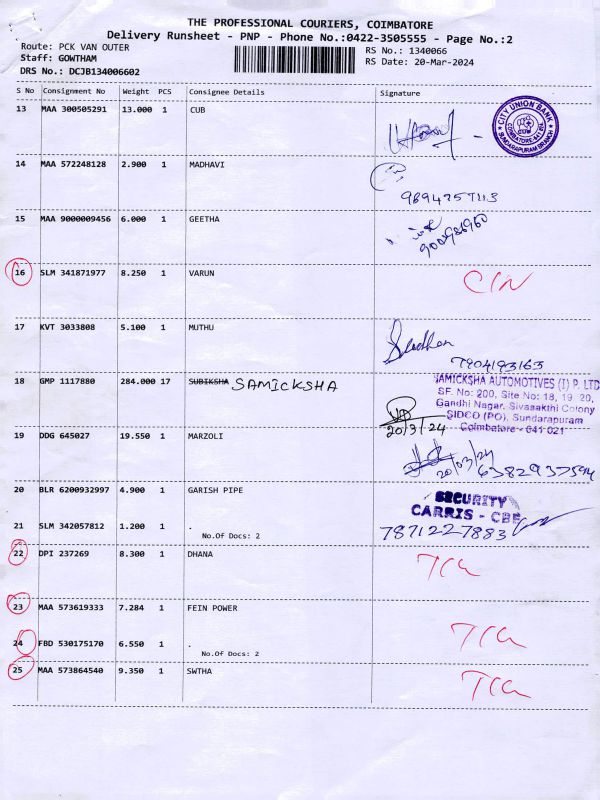 THE PROFESSIONAL COURIERS, COIMBATORE
Delivery Runsheet - PNP - Phone No.:0422-3505555 - Page No.:2
Route: PCK VAN OUTER
RS No.: 1340066
Staff: GOWTHAM
RS Date: 20-Mar-2024
DRS No.: DCJB134006602
S No Consignment No Weight PCS Consignee Details Signature
13 MAA 300505291 13.000 1 CUB
CITY UNION BANK
CUB
SUNDARAPURAM BRANCH
14 MAA 572248128 2.900 1 MADHAVI
15 MAA 9000009456 6.000 1 GEETHA
16 SLM 341871977 8.250 1 VARUN
17 KVT 3033808 5.100 1 MUTHU
7904193163
18 GMP 1117880 284.000 17 SUBIKSHA SAMICKSHA
JAMICKSHA AUTOMOTIVES (I) P. LTD
SF. No: 200, Site No: 18, 19, 20,
Gandhi Nagar, Sivasakthi Colony
SIDCO (PO), Sundarapuram
Coimbatore - 641 021
20/3/24
19 DDG 645027 19.550 1 MARZOLI
20/03/24
20 BLR 6200932997 4.900 1 GARISH PIPE
SECURITY
CARRIS - CBE
7871227883
21 SLM 342057812 1.200 1 .
No.Of Docs: 2
22 DPI 237269 8.300 1 DHANA
23 MAA 573619333 7.284 1 FEIN POWER
24 FBD 530175170 6.550 1 .
No.Of Docs: 2
25 MAA 573864540 9.350 1 SWTHA